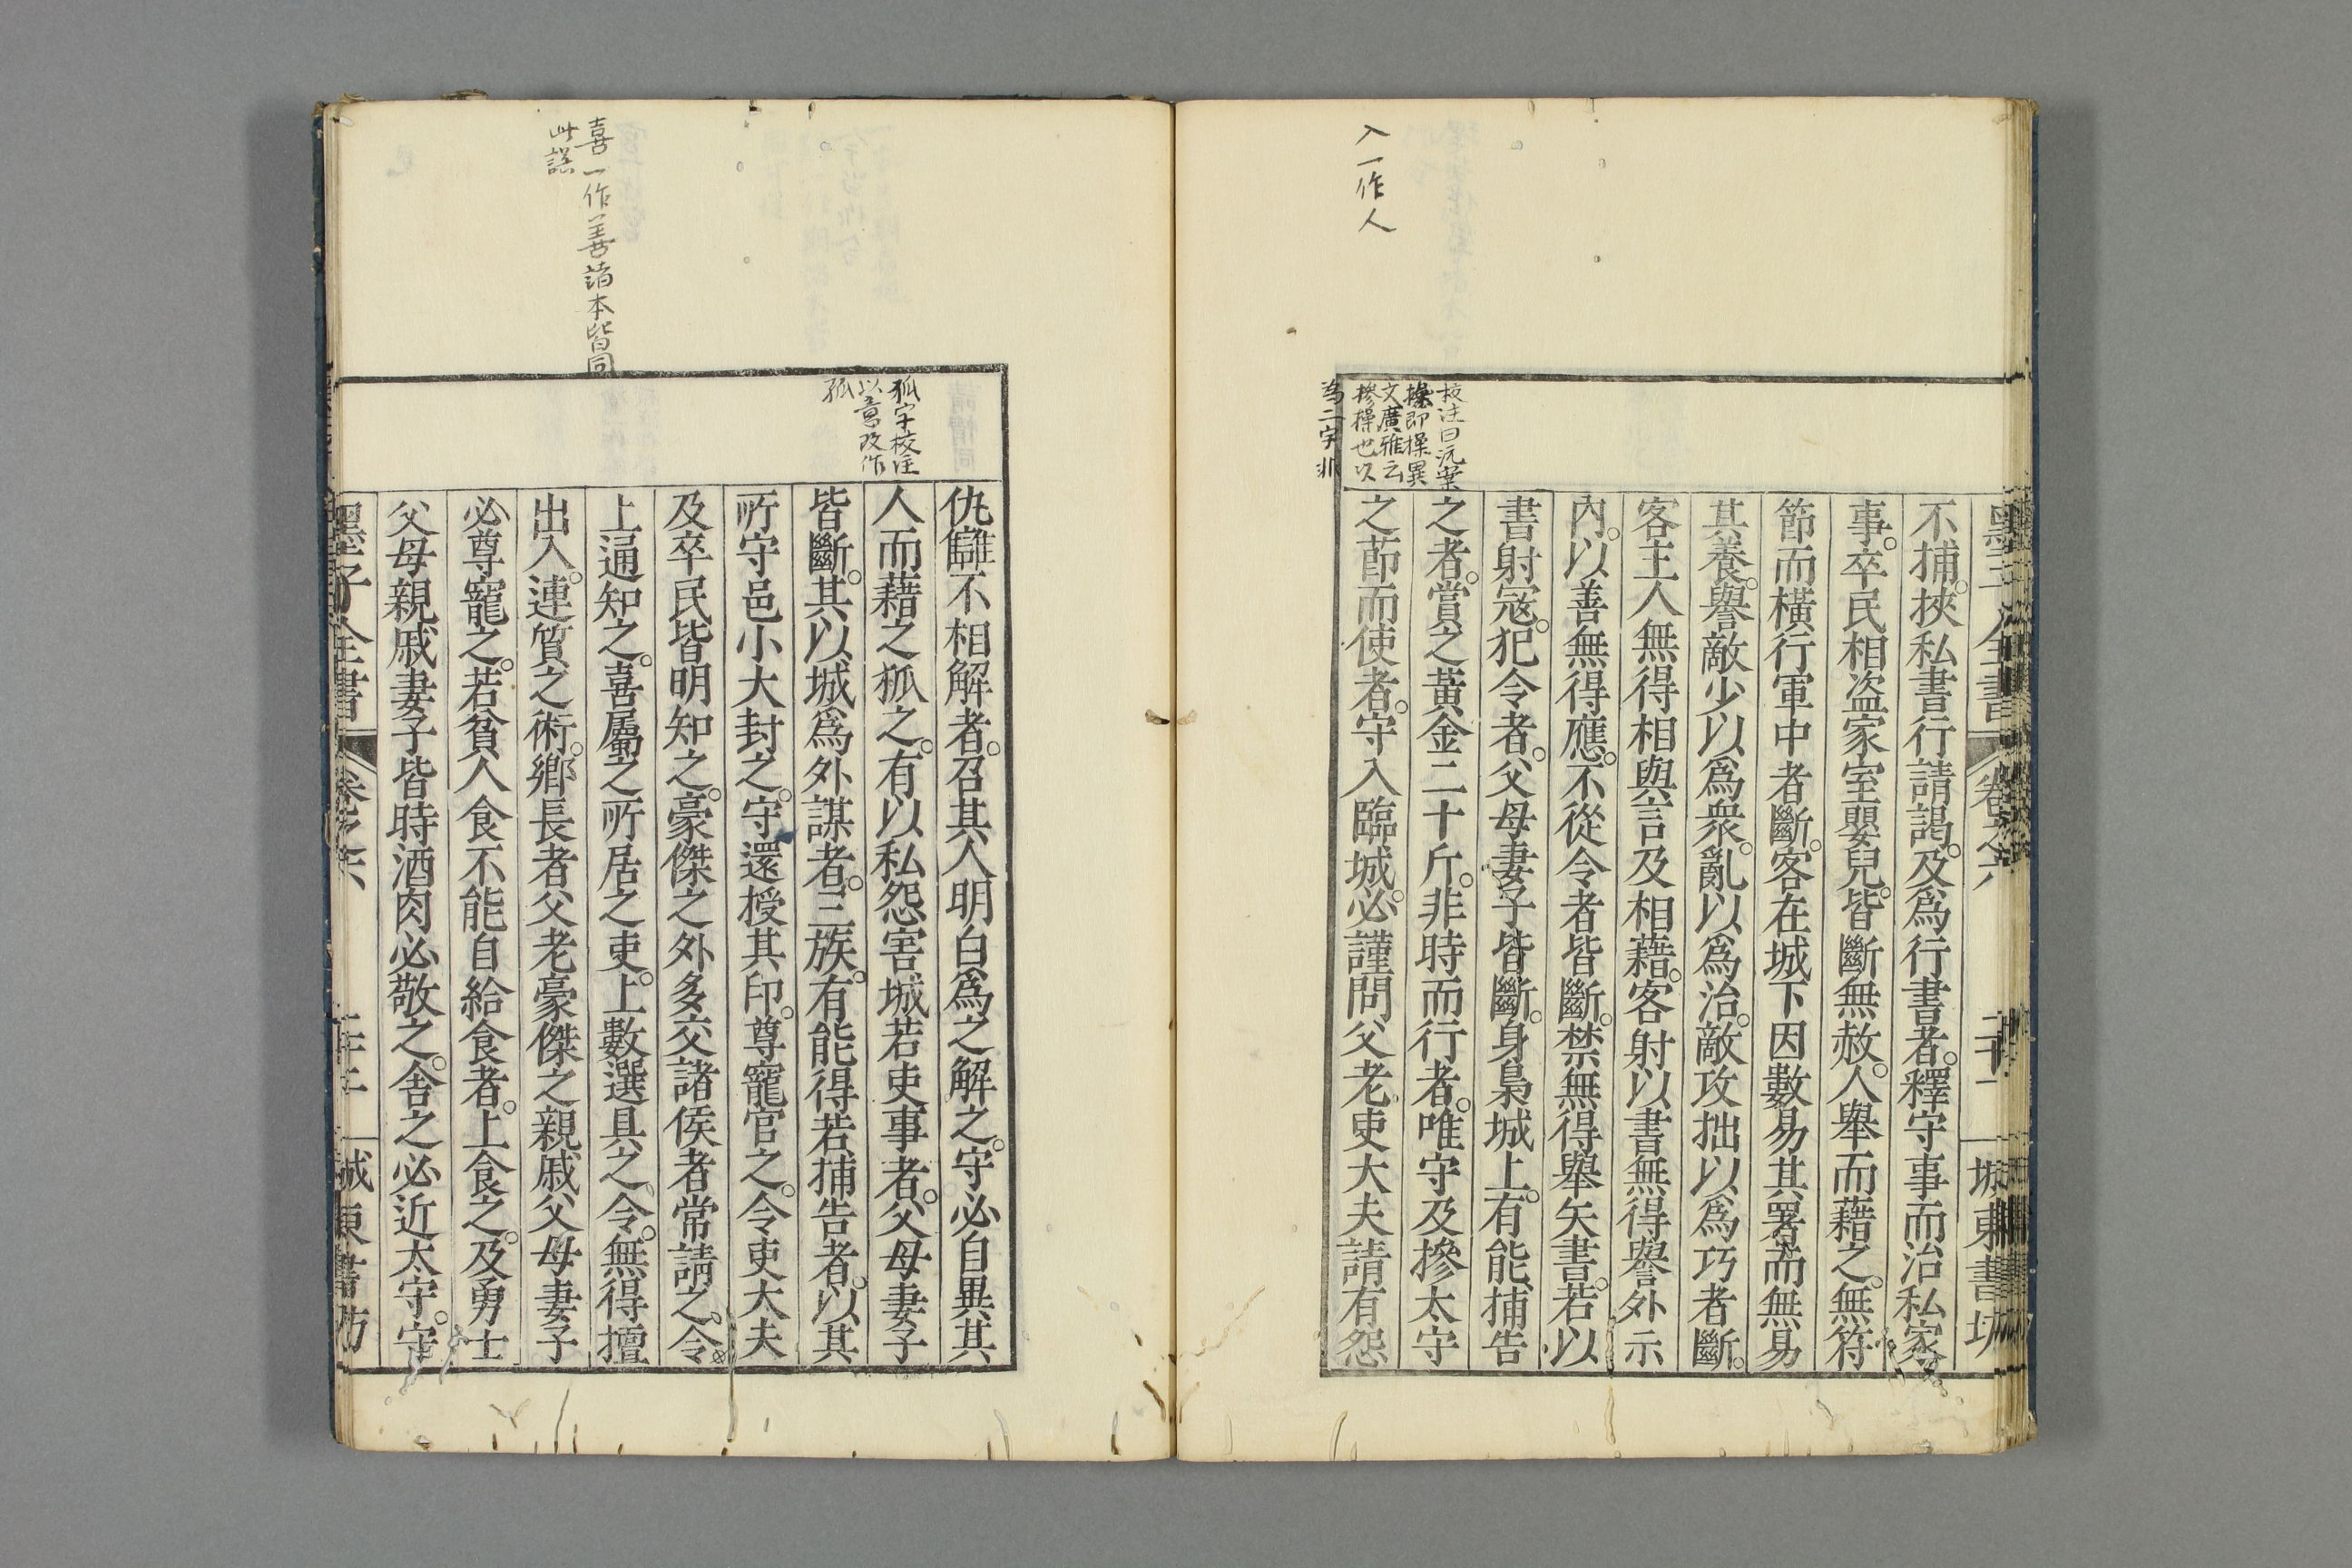 入一作人
校注曰沅案
摻即操異
文廣雅云
摻操也以
爲二字非
墨子全書 卷之六 二十一 城東書坊
不捕。挾私書行請謁。及爲行書者。釋守事而治私家
事。卒民相盗家室嬰兒。皆斷無赦。人舉而藉之。無符
節而橫行軍中者斷。客在城下因數易其署而無易
其養。譽敵少以爲衆。亂以爲治。敵攻拙以爲巧者斷。
客主人無得相與言及相藉。客射以書無得譽外示
內。以善無得應。不從令者皆斷。禁無得舉矢書。若以
書射寇。犯令者。父母妻子皆斷。身梟城上。有能捕告
之者。賞之黃金二十斤。非時而行者。唯守及摻太守
之莭而使者。守入臨城。必謹問父老吏大夫請有怨
喜一作善諸本皆同
此誤
狐字校注
以意改作
孤
仇讎不相解者。召其人明白爲之解之。守必自異其
人而藉之狐之。有以私怨害城若吏事者。父母妻子
皆斷。其以城爲外謀者。三族。有能得若捕告者。以其
所守邑小大封之。守還授其印。尊寵官之。令吏大夫
及卒民皆明知之。豪傑之外多交諸侯者常請之。令
上通知之。喜屬之所居之吏。上數選具之。令。無得擅
出入。連質之術。鄉長者父老豪傑之親戚父母妻子
必尊寵之。若貧人食不能自給食者。上食之。及勇士
父母親戚妻子皆時酒肉必敬之。舍之必近太守。守
墨子全書 卷之六 城東書坊